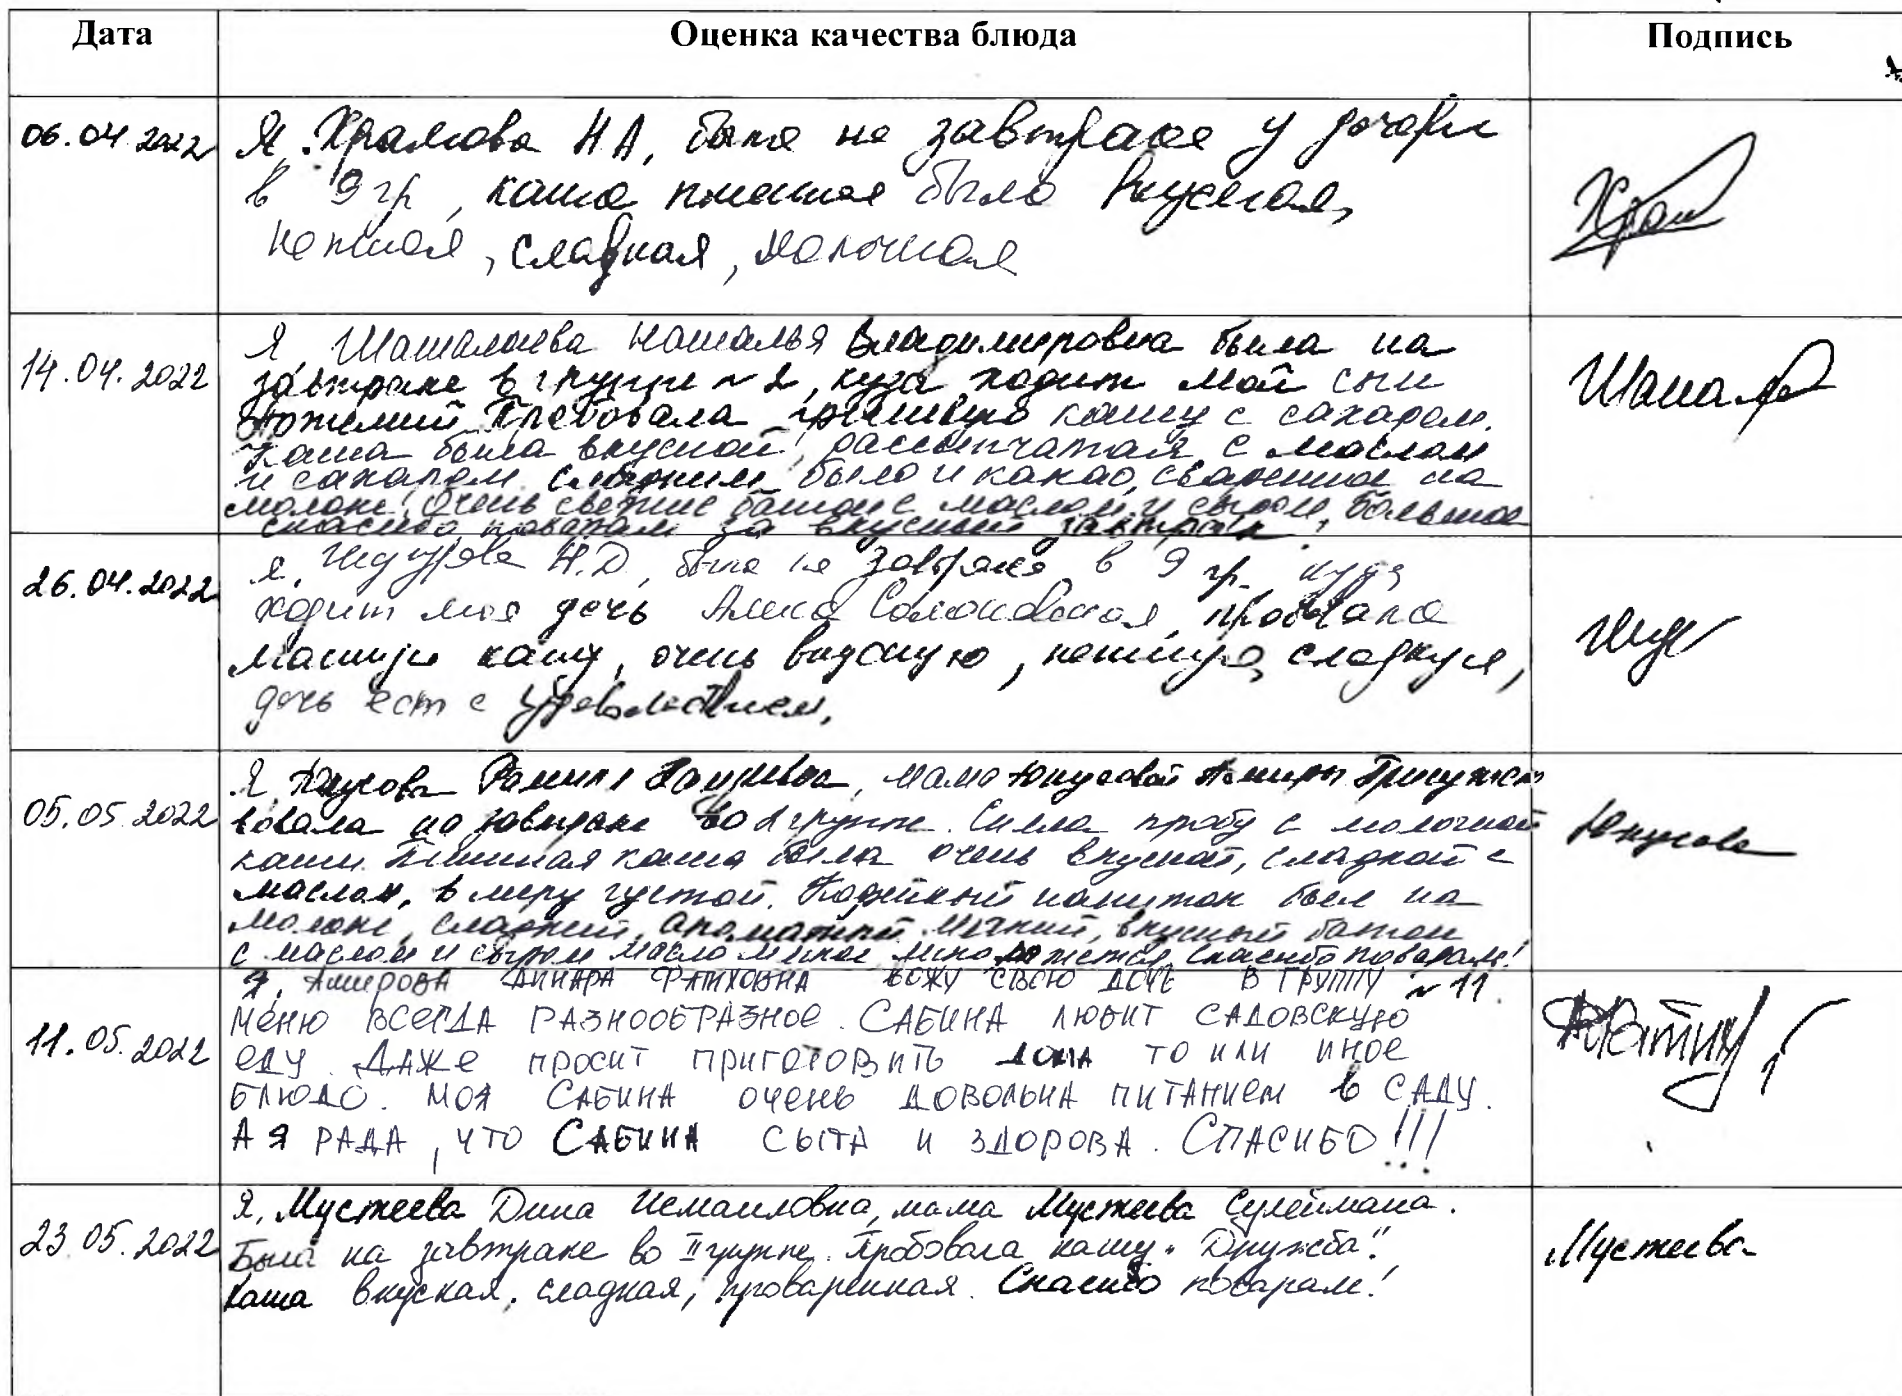 Дата Оценка качества блюда Подпись
06.04.2022 Я, Храмова Н А, была на завтраке у дочери
в 9 гр, каша пшенная была вкусная,
нежная, сладкая, молочная
Храм
14.04.2022 Я, Наталья Владимировна была на
завтраке в группе № 2, куда ходит мой сын
Пробовала кашу с сахаром.
Каша была вкусной, рассыпчатая с маслом
и сахаром. было и какао, сваренное на
молоке! Очень свежие батон с маслом и сыром, большое
спасибо поварам за вкусный завтрак!
26.04.2022 Я, Н.Д, была на завтраке в 9 гр. куда
ходит моя дочь Алиса пробовала
манную кашу, очень вкусную, нежную, сладкую,
дочь ест с удовольствием.
05.05.2022 Я мама Юнусовой Амиры Присутст
вовала на завтраке во 2 группе. Сняла пробу с молочной
каши. Пшенная каша была очень вкусной, сладкой с
маслом, в меру густой. Кофейный напиток был на
молоке, сладкий, ароматный. Мягкий, вкусный батон
с маслом и сыром масло мягкое спасибо поварам!
Юнусова
11.05.2022 Я, Амирова Динара Фатиховна вожу свою дочь в группу № 11.
Меню всегда разнообразное. Сабина любит садовскую
еду. Даже просит приготовить дома то или иное
блюдо. Моя Сабина очень довольна питанием в саду.
А я рада, что Сабина сыта и здорова. Спасибо!!!
23.05.2022 Я, Мустеева Дина Исмаиловна, мама Мустеева Сулеймана.
Была на завтраке во II группе. Пробовала кашу "Дружба".
Каша вкусная, сладкая, проваренная. Спасибо поварам!
Мустеева